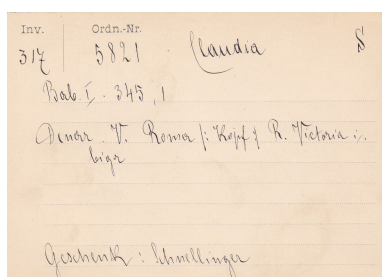 Inv. Ordn.-Nr.
317 5821 Claudia S
Bab. I. 345, 1
Denar. V. Roma /: Kopf :/ R. Victoria i.
biga
Geschenk: Schnellinger